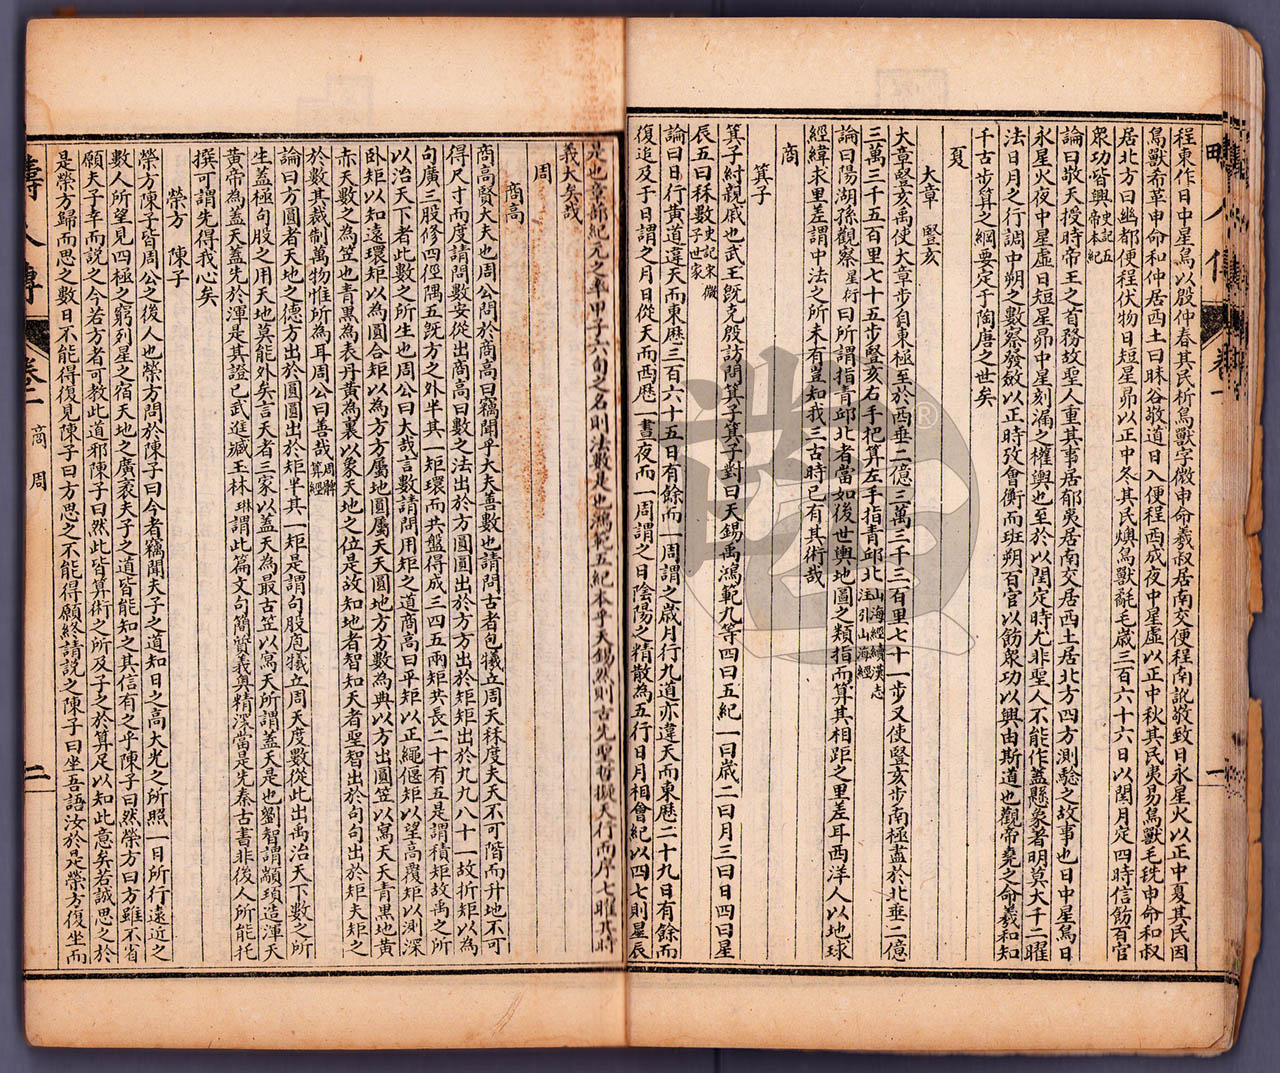 程東作日中星鳥以殷仲春其民析鳥獸字微申命羲叔居南交便程南訛敬致日永星火以正中夏其民因
鳥獸希革申命和仲居西土曰昧谷敬道日入便程西成夜中星虛以正中秋其民夷易鳥獸毛毨申命和叔
居北方曰幽都便程伏物日短星昴以正中冬其民燠鳥獸氄毛歲三百六十六日以閏月定四時信飭百官
衆功皆興史記五帝本紀
論曰敬天授時帝王之首務故聖人重其事居郁夷居南交居西土居北方四方測驗之故事也日中星鳥日
永星火夜中星虛日短星昴中星刻漏之權輿也至於以閏定時尤非聖人不能作蓋懸象著明莫大于二曜
法日月之行調中朔之數察發斂以正時攷會衡而班朔百官以飭衆功以興由斯道也觀帝堯之命羲和知
千古步算之綱要定于陶唐之世矣
夏
大章 豎亥
大章豎亥禹使大章步自東極至於西垂二億三萬三千三百里七十一步又使豎亥步南極盡於北垂二億
三萬三千五百里七十五步豎亥右手把算左手指青邱北山海經續漢志注引山海經
論曰陽湖孫觀察星衍曰所謂指青邱北者當如後世輿地圖之類指而算其相距之里差耳西洋人以地球
經緯求里差謂中法之所未有豈知我三古時已有其術哉
商
箕子
箕子紂親戚也武王既克殷訪問箕子箕子對曰天錫禹鴻範九等四曰五紀一曰歲二曰月三曰日四曰星
辰五曰秝數史記宋微子世家
論曰日行黃道違天而東歷三百六十五日有餘而一周謂之歲月行九道亦違天而東歷二十九日有餘而
復追及于日謂之月日從天而西歷一晝夜而一周謂之日陰陽之精散為五行日月相會紀以四七則星辰
是也章蔀紀元之率甲子六旬之名則法數是也鴻範五紀本乎天錫然則古先聖哲擬天行而序七曜其時
義大矣哉
周
商高
商高賢大夫也周公問於商高曰竊聞乎大夫善數也請問古者包犧立周天秝度夫天不可階而升地不可
得尺寸而度請問數安從出商高曰數之法出於方圓圓出於方方出於矩矩出於九九八十一故折矩以為
句廣三股修四徑隅五既方之外半其一矩環而共盤得成三四五兩矩共長二十有五是謂積矩故禹之所
以治天下者此數之所生也周公曰大哉言數請問用矩之道商高曰平矩以正繩偃矩以望高覆矩以測深
卧矩以知遠環矩以為圓合矩以為方方屬地圓屬天天圓地方方數為典以方出圓笠以寫天天青黑地黃
赤天數之為笠也青黑為表丹黃為裏以象天地之位是故知地者智知天者聖智出於句句出於矩夫矩之
於數其裁制萬物惟所為耳周公曰善哉周髀算經
論曰方圓者天地之德方出於圓圓出於矩半其一矩是謂句股庖犧立周天度數從此出禹治天下數之所
生蓋極句股之用天地莫能外矣言天者三家以蓋天為最古笠以寫天所謂蓋天是也劉智謂顓頊造渾天
黃帝為蓋天蓋先於渾是其證已武進臧玉林琳謂此篇文句簡質義奧精深當是先秦古書非後人所能托
撰可謂先得我心矣
榮方 陳子
榮方陳子皆周公之後人也榮方問於陳子曰今者竊聞夫子之道知日之高大光之所照一日所行遠近之
數人所望見四極之窮列星之宿天地之廣袤夫子之道皆能知之其信有之乎陳子曰然榮方曰方雖不省
願夫子幸而說之今若方者可教此道邪陳子曰然此皆算術之所及子之於算足以知此意矣若誠思之於
是榮方歸而思之數日不能得復見陳子曰方思之不能得願終請說之陳子曰坐吾語汝於是榮方復坐而
疇人傳 卷一 商 周 二